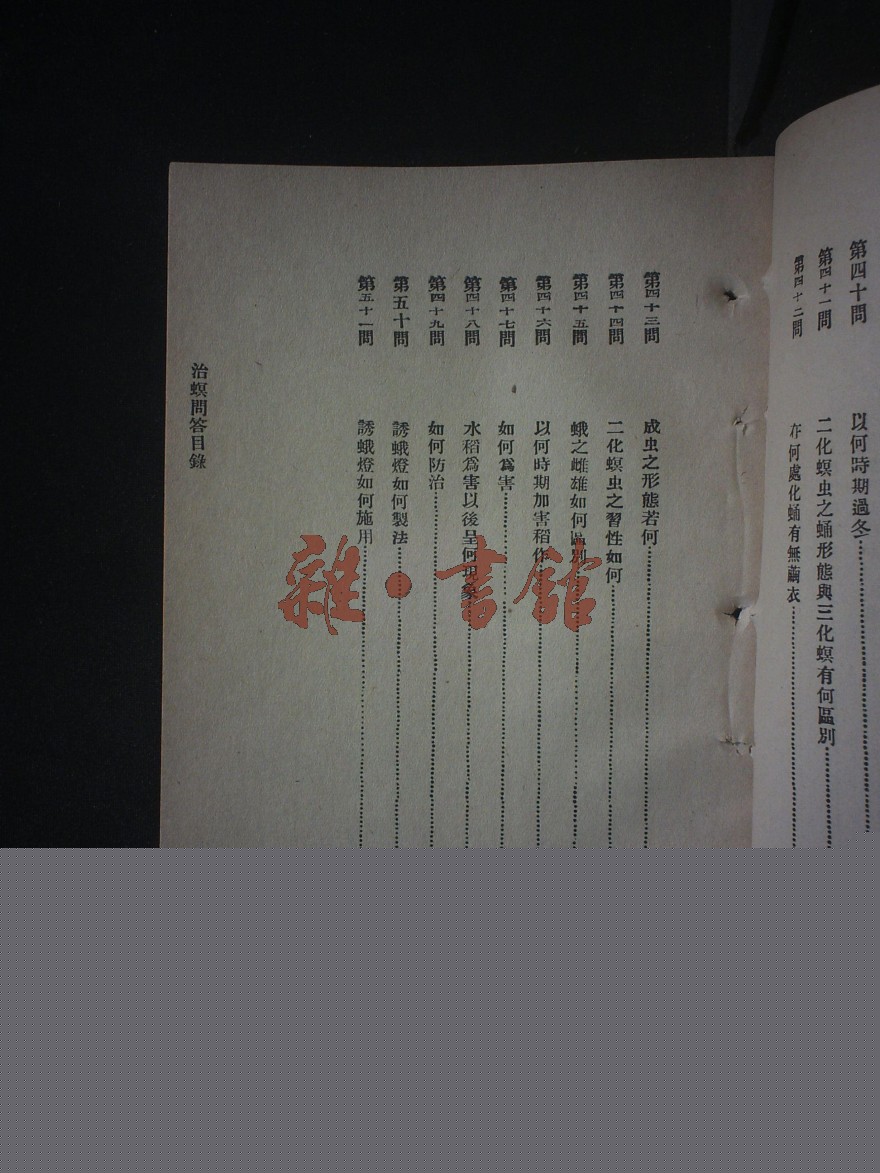 第四十問 以何時期過冬
第四十一問 二化螟虫之蛹形態與三化螟有何區別
第四十二問 在何處化蛹有無繭衣
第四十三問 成虫之形態若何
第四十四問 二化螟虫之習性如何
第四十五問 蛾之雌雄如何區別
第四十六問 以何時期加害稻作
第四十七問 如何爲害
第四十八問 水稻爲害以後呈何現象
第四十九問 如何防治
第五十問 誘蛾燈如何製法
第五十一問 誘蛾燈如何施用
治螟問答目錄
雜·書館